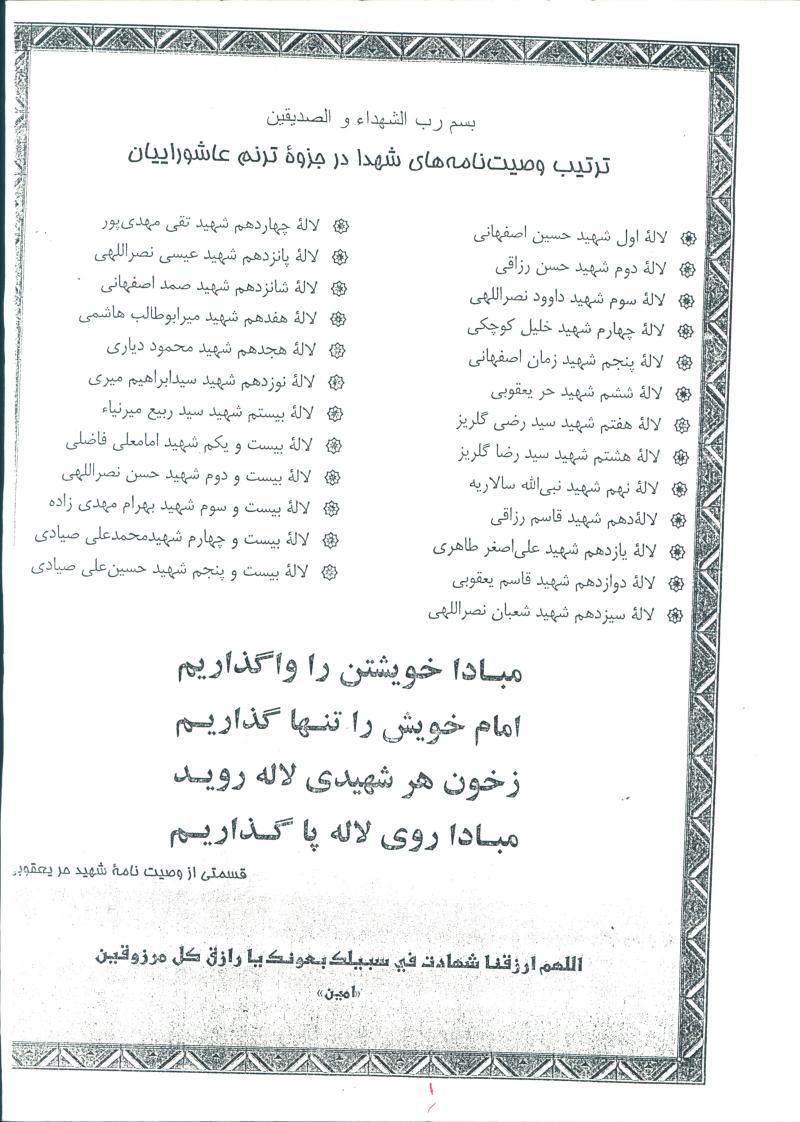 بسم رب الشهداء و الصدیقین
ترتیب وصیت‌نامه‌های شهدا در جزوهٔ ترنم عاشوراییان
لالهٔ اول شهید حسین اصفهانی
لالهٔ دوم شهید حسن رزاقی
لالهٔ سوم شهید داوود نصراللهی
لالهٔ چهارم شهید خلیل کوچکی
لالهٔ پنجم شهید زمان اصفهانی
لالهٔ ششم شهید حر یعقوبی
لالهٔ هفتم شهید سید رضی گلریز
لالهٔ هشتم شهید سید رضا گلریز
لالهٔ نهم شهید نبی‌الله سالاریه
لالهٔ‌دهم شهید قاسم رزاقی
لالهٔ یازدهم شهید علی‌اصغر طاهری
لالهٔ دوازدهم شهید قاسم یعقوبی
لالهٔ سیزدهم شهید شعبان نصراللهی
لالهٔ چهاردهم شهید تقی مهدی‌پور
لالهٔ پانزدهم شهید عیسی نصراللهی
لالهٔ شانزدهم شهید صمد اصفهانی
لالهٔ هفدهم شهید میرابوطالب هاشمی
لالهٔ هجدهم شهید محمود دیاری
لالهٔ نوزدهم شهید سیدابراهیم میری
لالهٔ بیستم شهید سید ربیع میرنیاء
لالهٔ بیست و یکم شهید امامعلی فاضلی
لالهٔ بیست و دوم شهید حسن نصراللهی
لالهٔ بیست و سوم شهید بهرام مهدی زاده
لالهٔ بیست و چهارم شهیدمحمدعلی صیادی
لالهٔ بیست و پنجم شهید حسین‌علی صیادی
مبـادا خویشتن را واگذاریم
امام خویش را تنـهـا گذاریـم
زخون هر شهیدی لاله رویـد
مبـادا روی لاله پا گـذاریـم
قسمتی از وصیت نامهٔ شهید حر یعقوبی
اللهم ارزقنا شهادت في سبیلك بعونك یا رازق کل مرزوقین
«امین»
۱